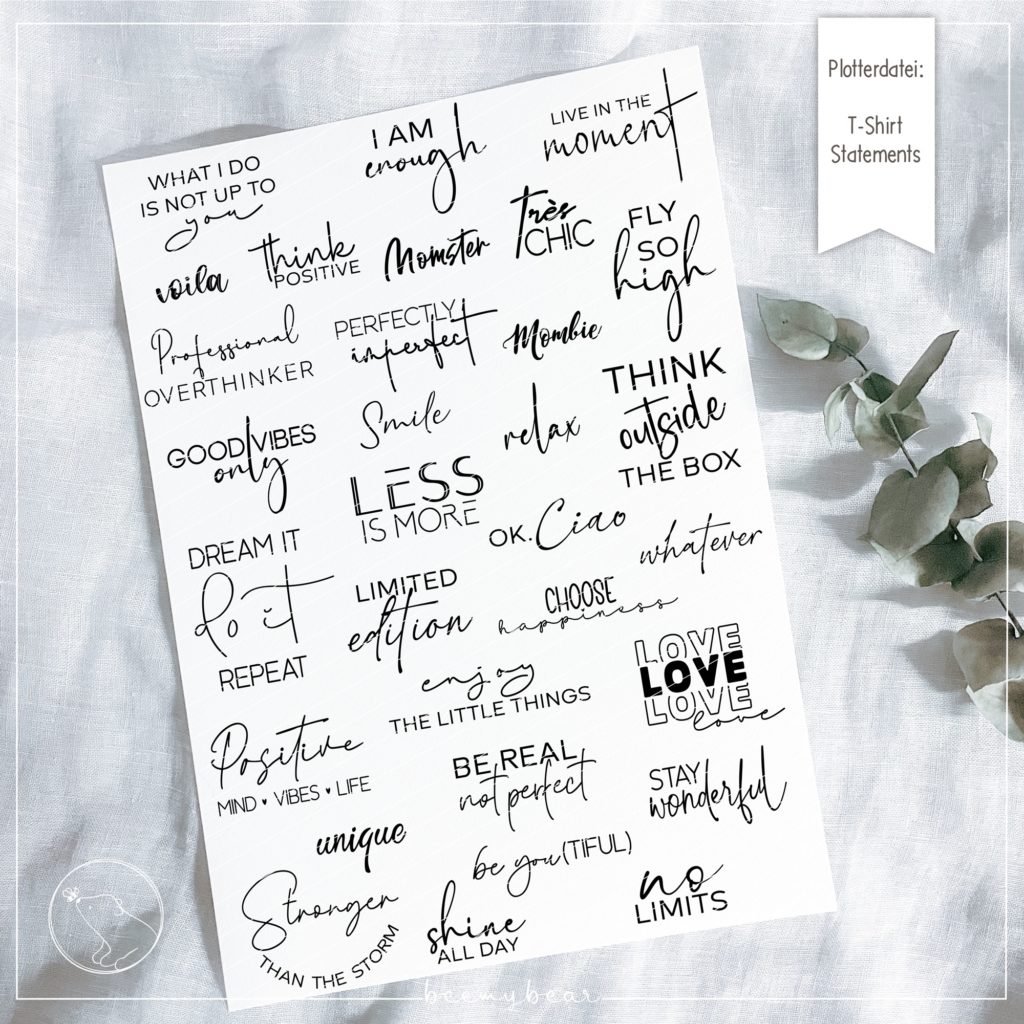 Plotterdatei:
T-Shirt
Statements
WHAT I DO
IS NOT UP TO
you
I AM
enough
LIVE IN THE
moment
voila
think
POSITIVE
Momster
Très
CHIC
FLY
SO
high
Professional
OVERTHINKER
PERFECTLY
imperfect
Mombie
THINK
outside
THE BOX
GOOD VIBES
only
Smile
relax
LESS
IS MORE
OK. Ciao
whatever
DREAM IT
do it
REPEAT
LIMITED
edition
CHOOSE
happiness
enjoy
THE LITTLE THINGS
LOVE
LOVE
LOVE
love
Positive
MIND ♥ VIBES ♥ LIFE
BE REAL
not perfect
STAY
wonderful
unique
be you(TIFUL)
no
LIMITS
Stronger
THAN THE STORM
shine
ALL DAY
beemybear